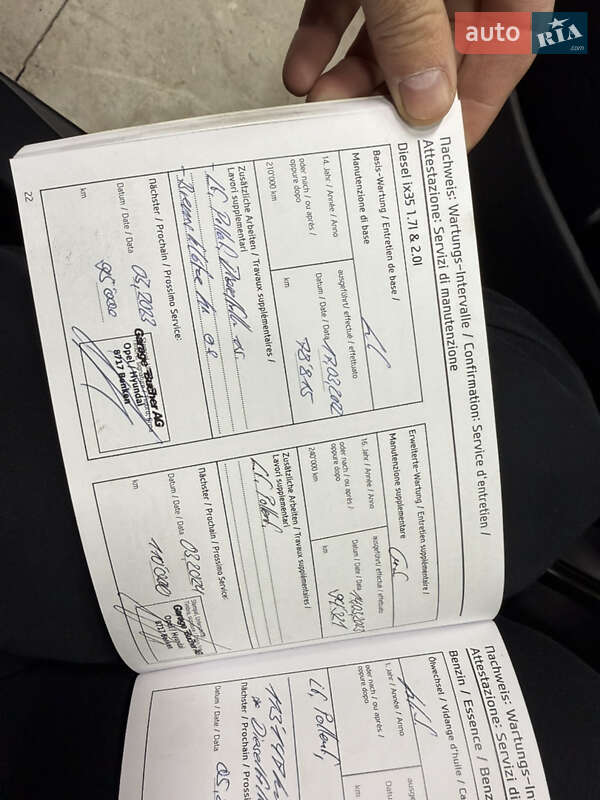 auto RIA
.com
Nachweis: Wartungs-Intervalle / Confirmation: Service d'entretien /
Attestazione: Servizi di manutenzione
Diesel ix35 1.7l & 2.0l
Basis-Wartung / Entretien de base /
Manutenzione di base
14. Jahr / Année / Anno
oder nach / ou après /
oppure dopo
210'000 km
ausgeführt / effectué / effettuato
Datum / Date / Data 17.03.2022
km 78'815
Zusätzliche Arbeiten / Travaux supplémentaires /
Lavori supplementari
Nächster / Prochain / Prossimo Service:
Datum / Date / Data 03.2023
km 95'000
Garage Bucher AG
Opel / Hyundai
8717 Benken
22
Erweiterte-Wartung / Entretien supplémentaire /
Manutenzione supplementare
16. Jahr / Année / Anno
oder nach / ou après /
oppure dopo
240'000 km
ausgeführt / effectué / effettuato
Datum / Date / Data
km 94'321
Zusätzliche Arbeiten / Travaux supplémentaires /
Lavori supplementari
Nächster / Prochain / Prossimo Service:
Datum / Date / Data 03.2024
km 110'000
Garage
Opel / Hyundai
8717 Benken
Nachweis: Wartungs-
Attestazione: Servizi di
Benzin / Essence / Benz
Ölwechsel / Vidange d'huile / Ca
1. Jahr / Année / Anno
oder nach / ou après /
oppure dopo
ausge
Datum
km
Zusätzliche Arbeiten
Nächster / Prochain / P
Datum / Date / Data 05.